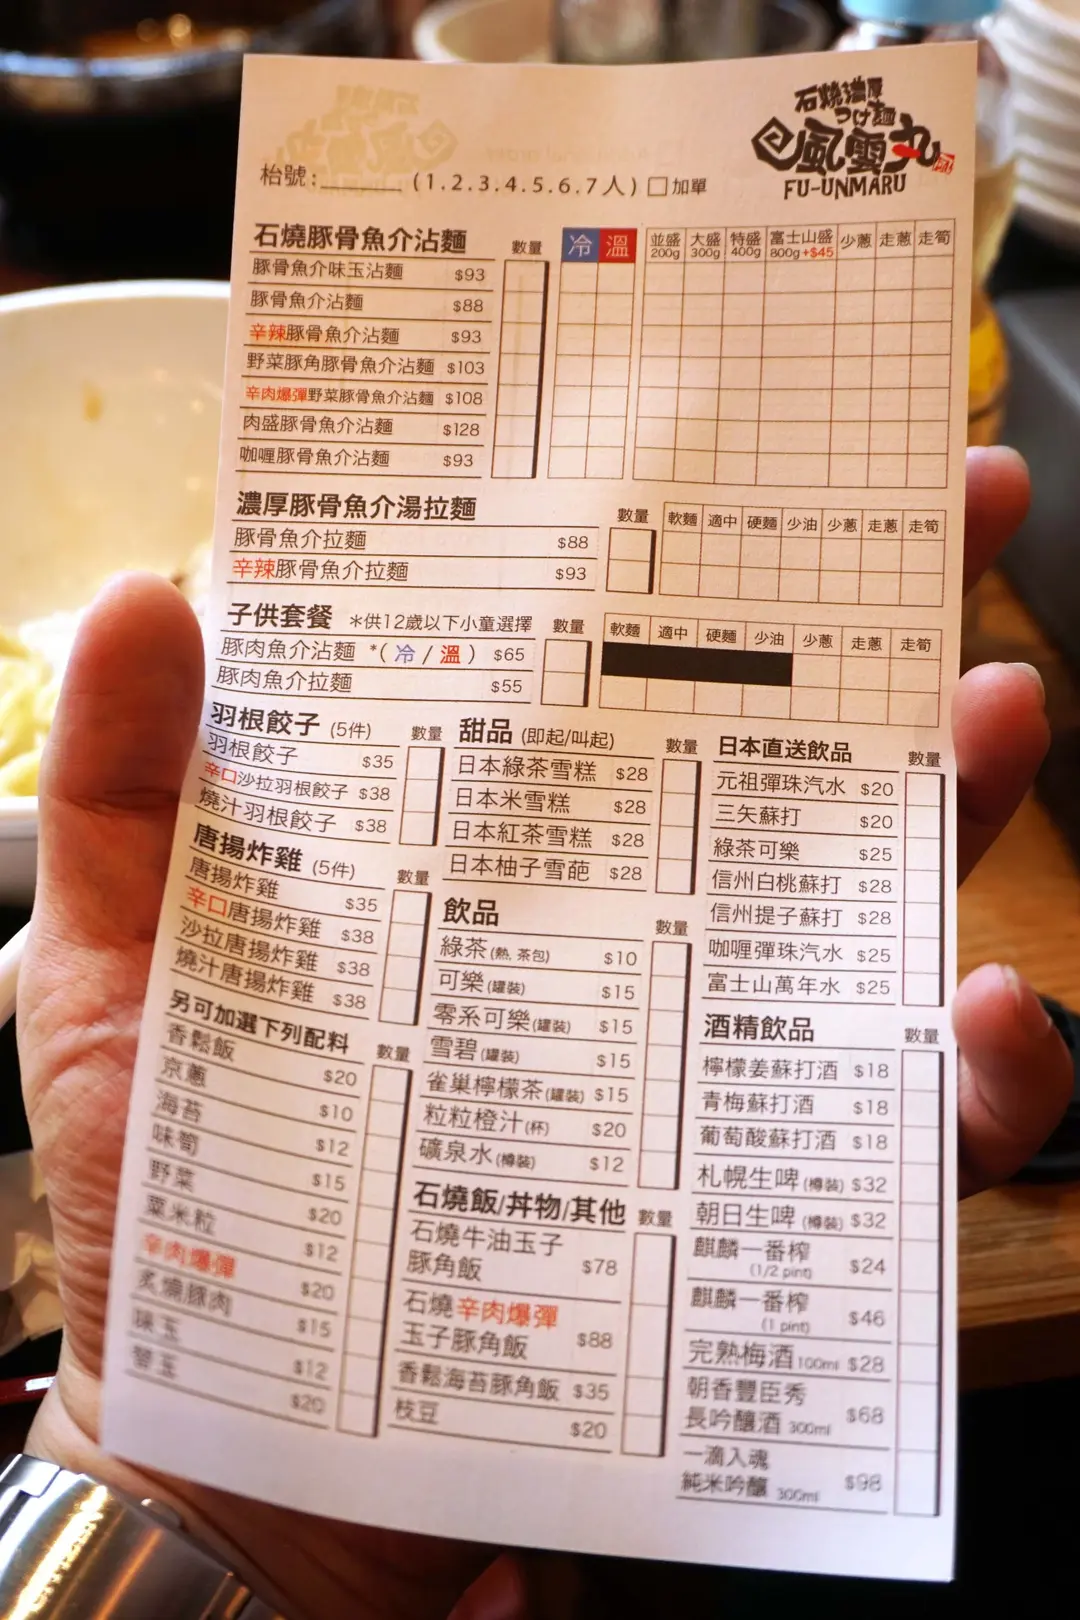 石燒濃厚
つけ麵
風雲丸
FU-UNMARU
枱號：______ (1.2.3.4.5.6.7人) □加單
石燒豚骨魚介沾麵 數量 冷 溫 並盛200g 大盛300g 特盛400g 富士山盛800g+$45 少蔥 走蔥 走筍
豚骨魚介味玉沾麵 $93
豚骨魚介沾麵 $88
辛辣豚骨魚介沾麵 $93
野菜豚角豚骨魚介沾麵 $103
辛肉爆彈野菜豚骨魚介沾麵 $108
肉盛豚骨魚介沾麵 $128
咖喱豚骨魚介沾麵 $93
濃厚豚骨魚介湯拉麵 數量 軟麵 適中 硬麵 少油 少蔥 走蔥 走筍
豚骨魚介拉麵 $88
辛辣豚骨魚介拉麵 $93
子供套餐 *供12歲以下小童選擇 數量 軟麵 適中 硬麵 少油 少蔥 走蔥 走筍
豚肉魚介沾麵 *(冷/溫) $65
豚肉魚介拉麵 $55
羽根餃子 (5件) 數量
羽根餃子 $35
辛口沙拉羽根餃子 $38
燒汁羽根餃子 $38
唐揚炸雞 (5件) 數量
唐揚炸雞 $35
辛口唐揚炸雞 $38
沙拉唐揚炸雞 $38
燒汁唐揚炸雞 $38
另可加選下列配料 數量
香鬆飯 $20
京蔥 $10
海苔 $12
味筍 $15
野菜 $20
粟米粒 $12
辛肉爆彈 $20
炙燒豚肉 $15
味玉 $12
替玉 $20
甜品 (即起/叫起) 數量
日本綠茶雪糕 $28
日本米雪糕 $28
日本紅茶雪糕 $28
日本柚子雪葩 $28
飲品 數量
綠茶 (熱, 茶包) $10
可樂 (罐裝) $15
零系可樂 (罐裝) $15
雪碧 (罐裝) $15
雀巢檸檬茶 (罐裝) $15
粒粒橙汁 (杯) $20
礦泉水 (樽裝) $12
石燒飯/丼物/其他 數量
石燒牛油玉子
豚角飯 $78
石燒辛肉爆彈
玉子豚角飯 $88
香鬆海苔豚角飯 $35
枝豆 $20
日本直送飲品 數量
元祖彈珠汽水 $20
三矢蘇打 $20
綠茶可樂 $25
信州白桃蘇打 $28
信州提子蘇打 $28
咖喱彈珠汽水 $25
富士山萬年水 $25
酒精飲品 數量
檸檬姜蘇打酒 $18
青梅蘇打酒 $18
葡萄酸蘇打酒 $18
札幌生啤 (樽裝) $32
朝日生啤 (樽裝) $32
麒麟一番榨
(1/2 pint) $24
麒麟一番榨
(1 pint) $46
完熟梅酒 100ml $28
朝香豐臣秀
長吟釀酒 300ml $68
一滴入魂
純米吟釀 300ml $98